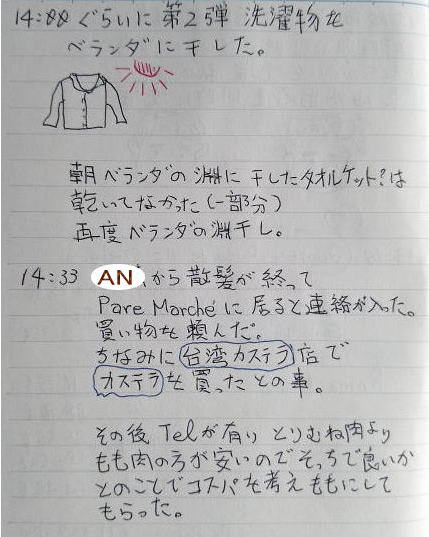 14:00 ぐらいに 第2弾 洗濯物を
ベランダに干した。
朝ベランダの淵に干したタオルケット?は
乾いてなかった(一部分)
再度ベランダの淵干し。
14:33 AN から散髪が終って
Pare Marchéに居ると連絡が入った。
買い物を頼んだ。
ちなみに台湾カステラ店で
カステラを買ったとの事。
その後 Telが有り とりむね肉より
もも肉の方が安いのでそっちで良いか
とのことでコスパを考えももにして
もらった。